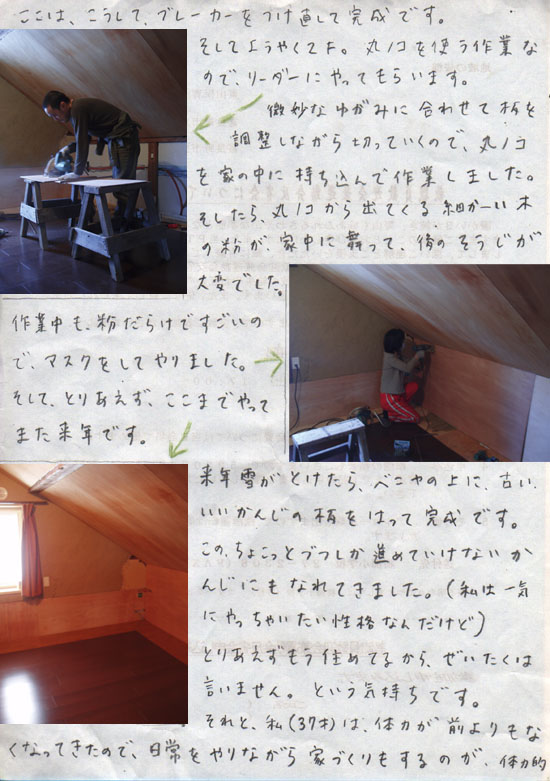 ここは、こうして、ブレーカーをつけ直して完成です。
そしてようやく2F。丸ノコを使う作業な
ので、リーダーにやってもらいます。
微妙なゆがみに合わせて板を
調整しながら切っていくので、丸ノコ
を家の中に持ち込んで作業しました。
そしたら、丸ノコから出てくる細かーい木
の粉が、家中に舞って、後のそうじが
大変でした。
作業中も、粉だらけですごいの
で、マスクをしてやりました。
そして、とりあえず、ここまでやって
また来年です。
来年雪がとけたら、ベニヤの上に、古い、
いいかんじの板をはって完成です。
この、ちょこっとづつしか進めていけないか
んじにもなれてきました。(私は一気
にやっちゃいたい性格なんだけど)
とりあえずもう住めてるから、ぜいたくは
言いません。という気持ちです。
それと、私(37才)は、体力が前よりもな
くなってきたので、日常をやりながら家づくりもするのが、体力的